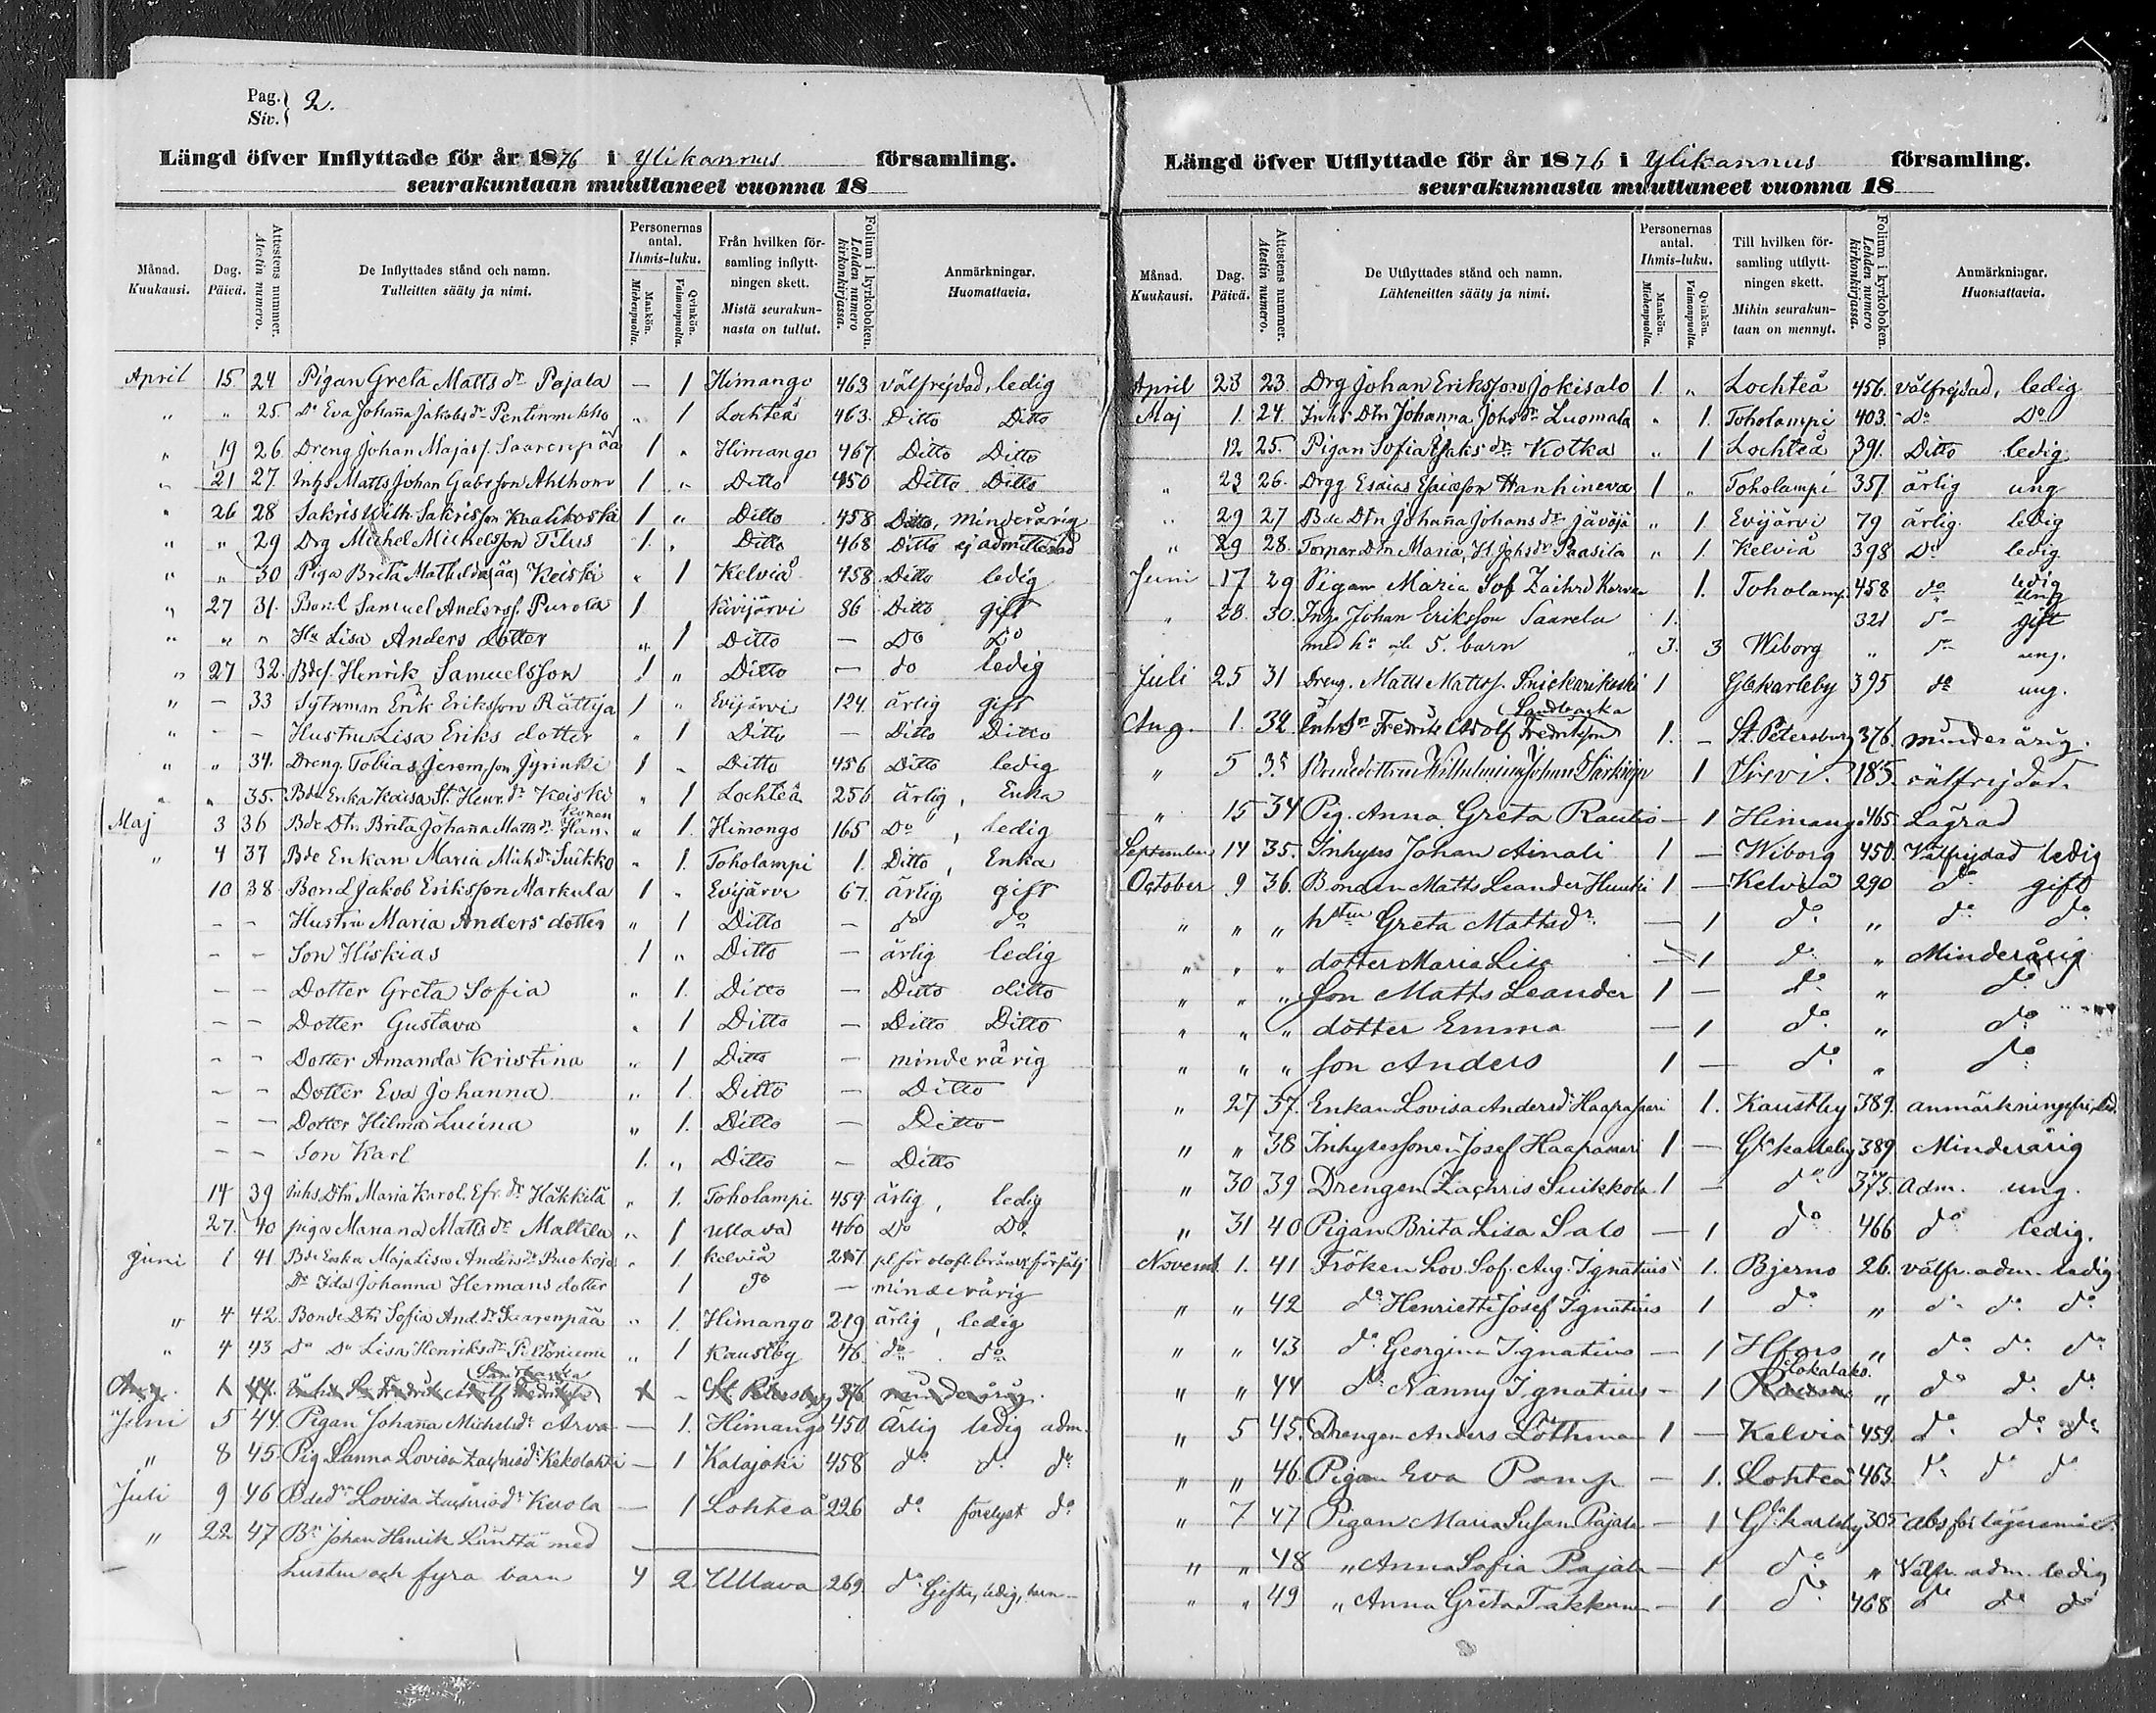 Pag. } 2.
Siv. }
Längd öfver Inflyttade för år 1876 i Ylikannus församling.
seurakuntaan muuttaneet vuonna 18
Månad. Kuukausi. Dag. Päivä. Attestens nummer. Atestin numero. De Inflyttades stånd och namn. Tulleitten sääty ja nimi. Personernas antal. Ihmis-luku. Mankön. Miehenpuolta. Qvinkön. Vaimonpuolta. Från hvilken församling inflyttningen skett. Mistä seurakunnasta on tullut. Folium i kyrkoboken. Lehden numero kirkonkirjassa. Anmärkningar. Huomattavia.
April 15 24 Pigan Greta Matts dr Pajala — 1 Himango 463 välfrejdad, ledig
" " 25 Do Eva Johanna Jakobs dr Pentinmikko " 1 Lochteå 463. Ditto Ditto
" 19 26. Dreng Johan Majas s. Saarenpää 1 " Himango 467. Ditto Ditto
" 21 27 Inhs Matts Johan Gabrsson Ahlholm 1 " Ditto 450 Ditto Ditto
" 26 28 Sakris Wilh. Sakrisson Kaalikoski 1 " Ditto 458 Ditto, minderårig
" " 29 Drg Michel Michelsson Tilus 1. " Ditto 468 Ditto ej admitterad
" " 30 Piga Brita Mathilda Keiski " 1 Kelviå 458 Ditto ledig
" 27 31. Bond Samuel Anderss. Purola 1 Kivijärvi 86 Ditto gift
" " " Hu Lisa Anders dotter " 1 Ditto — Do Do
" 27 32. Bdes. Henrik Samuelsson 1 " Ditto — do ledig
" — 33 Sytnman Erik Eriksson Rättyä 1 " Evijärvi 124. ärlig gift
" — — Hustru Lisa Eriks dotter " 1 Ditto — Ditto Ditto
" " 34. Dreng. Tobias Jerem.son Jyrinki 1 " Ditto 456 Ditto ledig
" " 35. Bde Enka Kaisa St. Henr. dr Keiski " 1 Lochteå 256 ärlig, Enka
Maj 3 36 Bde Dtr Brita Johanna Matts dr Han- " 1. Himango 165 Do, ledig
" 4 37 Bde Enkan Maria Mich dr Suikko " 1. Toholampi 1. Ditto, Enka
10 38. Bond Jakob Eriksson Markula 1 " Evijärvi 67. ärlig gift
— — Hustru Maria Anders dotter " 1 Ditto — do do
— — Son Hiskias 1 " Ditto — ärlig ledig
— — Dotter Greta Sofia " 1. Ditto — Ditto ditto
— — Dotter Gustava " 1 Ditto — Ditto Ditto
— — Dotter Amanda Kristina " 1 Ditto — minderårig
— — Dotter Eva Johanna " 1. Ditto — Ditto
— — Dotter Hilma Lucina " 1. Ditto — Ditto
— — Son Karl 1. " Ditto — Ditto
14 39 Inhs. Dtn Maria Karol. Efr. dr Häkkilä " 1. Toholampi 459 ärlig, ledig
27. 40 piga Mariana Matts dr Mattila " 1 Ullava 460 Do Do
Juni 1 41 Bde Enka Maja Lisa Anders dr " 1. Kelviå
Do Ida Johanna Hermans dotter 1 do — minderårig
" 4 42. Bonde Dtr Sofia And. dr Saarenpää " 1. Himango 219 ärlig, ledig
" 4 43 Do Do Lisa Henriks dr Peltoniemi " 1 Kaustby 46. do do
Aug. 1 44. Sandbacka Fredrik Adolf Fredriksson 1 - St. Petersburg 376 minderårig.
Juni 5 44. Pigan Johanna Michelsdr Arva — 1. Himango 450 Ärlig ledig adm.
" 8 45. Pig Sanna Lovisa Zachrisdr Kekolahti — 1 Kalajoki 458 do do do
Juli 9 46 Bdedr Lovisa Zachrisdr Kuola — 1 Lohteå 226 do förelyst do
" 22 47 Bn Johan Henrik Länttä med
— hustru och fyra barn 4 2 Ullava 269 do Gifta, ledig, barn—
Längd öfver Utflyttade för år 1876 i Ylikannus församling.
seurakunnasta muuttaneet vuonna 18
Månad. Kuukausi. Dag. Päivä. Attestens nummer. Atestin numero. De Utflyttades stånd och namn. Lähteneitten sääty ja nimi. Personernas antal. Ihmis-luku. Mankön. Miehenpuolta. Qvinkön. Vaimonpuolta. Till hvilken församling utflyttningen skett. Mihin seurakuntaan on mennyt. Folium i kyrkoboken. Lehden numero kirkonkirjassa. Anmärkningar. Huomattavia.
April 28 23. Drg Johan Eriksson Jokisalo 1. " Lochteå 456. välfrejdad, ledig
Maj 1. 24. Inhs Dtn Johanna Johs dr Luomala " 1. Toholampi 403. Do Do
12 25. Pigan Sofia Jaks dr Kotka " 1 Lochteå 391. Ditto ledig
" 23 26. Drgg Esaias Esaiasson Hanhineva 1 " Toholampi 357 ärlig ung
" 29 27 Bde Dtn Johanna Johans dr Jäväjä " 1. Evijärvi 79 ärlig. ledig
" 29 28. Torpar Dtn Maria H. Johs dr Paasila " 1. Kelviå 398 Do ledig
Juni 17 29 Pigan Maria Sof Zachrd 1. Toholamp. 458 do ledig
" 28. 30. Inhs Johan Eriksson Saarela 1. 321 do gift
med hu och 5. barn 3. 3 Wiborg " do ung.
Juli 25 31 Dreng. Matts Mattss. Snickarikoski 1 Glkarleby 395 do ung.
Aug. 1. 32. Inhsn Fredrik Adolf Fredriksson Sandbacka 1. - St. Petersburg 376. minderårig.
" 5 33 Bondedottern Wilhelmina Johans 1 Virvi. 185. välfrejdad.
" 15 34 Pig. Anna Greta Rautio — 1 Himango 465. Lägrad
September 14 35. Inhyses Johan Ainali 1 — Wiborg 450. Välfrejdad ledig
October 9 36. Bonden Matts Leander Huuki 1 — Kelviå 290 do gift
" " " hstru Greta Mattsdr — 1 do " do do
" " " dotter Maria Lisa — 1 do " Minderårig
" " " Son Matts Leander 1 — do " do
" " " dotter Emma — 1 do " do
" " " son Anders 1 — do " do
" 27 37. Enkan Lovisa Andersdr Haapasaari 1. Kaustby 389. anmärkningsfri, led.
" " 38 Inhysessonen Josef Haapasaari 1 — Glakarleby 389 Minderårig
" 30 39 Drengen Zachris Suikkola 1 — do 375. Adm. ung.
" 31 40 Pigan Brita Lisa Salo — 1 do 466 do ledig.
Novemb. 1. 41 Fröken Lov. Sof. Aug. Ignatius 1. Bjerno 26. välfr. adm. ledig
" " 42 do Henriette Josef Ignatius 1 do " do do do
" " 43 do Georgina Ignatius — 1 Hfors " do do do
" " 44 do Nanny Ignatius — 1 Lokalaks. " do do do
" 5 45. Drengen Anders Löthman 1 — Kelviå 459. do do do
" " 46. Pigan Eva Pamp — 1. Lohteå 463. do do do
" 7 47 Pigan Maria Susan Pajala — 1 Glakarleby 305 Abs för lägersmål.
" " 48 " Anna Sofia Pajala — 1 do " Välfr. adm. ledig
" " 49 " Anna Greta Takkunen — 1 do 468 do do do